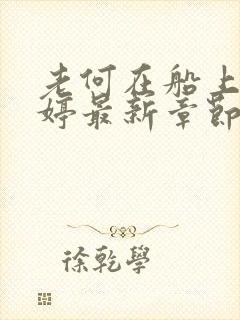 老何在船上
婷最新章節
徐乾學